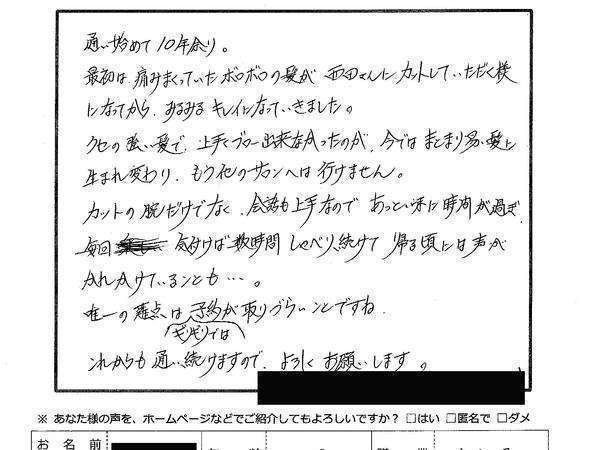 通い始めて10年余り。
最初は痛みまくっていたボロボロの髪が西田さんにカットしていただく様
になってから、みるみるキレイになっていきました。
クセの強い髪で、上手くブロー出来なかったのが、今ではまとまり易い髪に
生まれ変わり、もう他のサロンへは行けません。
カットの腕だけでなく、会話も上手なので あっという間に時間が過ぎ、
毎回 気付けば数時間しゃべり続けて帰る頃には声が
かれかけていることも…。
唯一の難点は予約が取りづらいことですね。
ギリギリでは
これからも通い続けますので、よろしくお願いします。
※ あなた様の声を、ホームページなどでご紹介してもよろしいですか? □はい □匿名で □ダメ
お名前